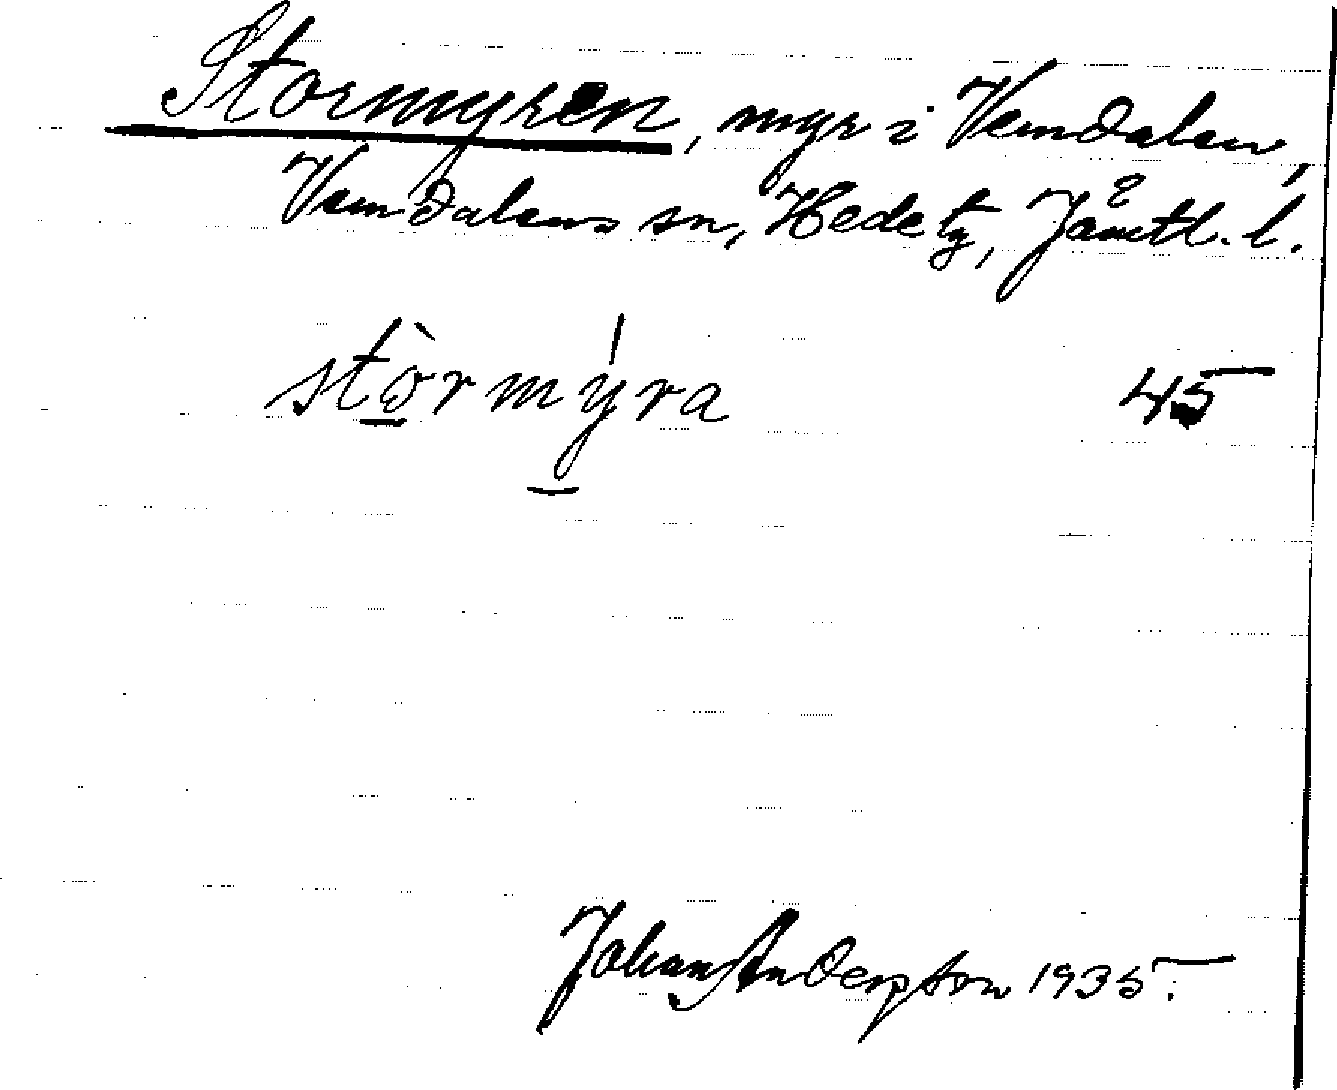 Stormyren, myr i Vemdalen,
Vemdalens sn, Hede tg, Jämtl. l.
stòrmýra 45
Johan Anderson 1935.